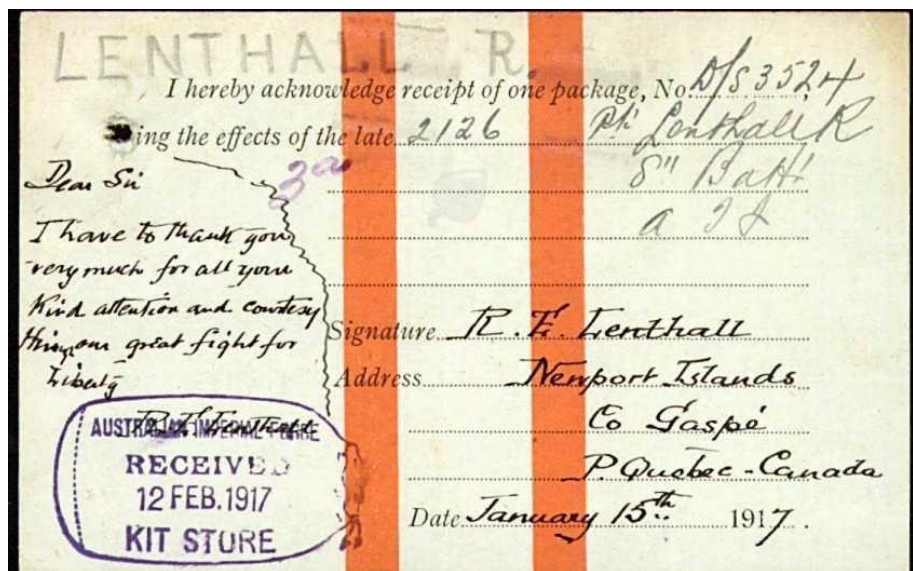 LENTHALL R.
I hereby acknowledge receipt of one package, No. D/S 3524
ing the effects of the late 2126 Pte Lenthall R
8" Batt'
A I F
Dear Sir
I have to thank you
very much for all your
Kind attention and courtesy
our great fight for
Liberty
R. E. Lenthall
Signature R. E. Lenthall
Address Newport Islands
Co Gaspé
P. Quebec - Canada
Date January 15th 1917.
AUSTRALIAN IMPERIAL FORCE
RECEIVED
12 FEB. 1917
KIT STORE